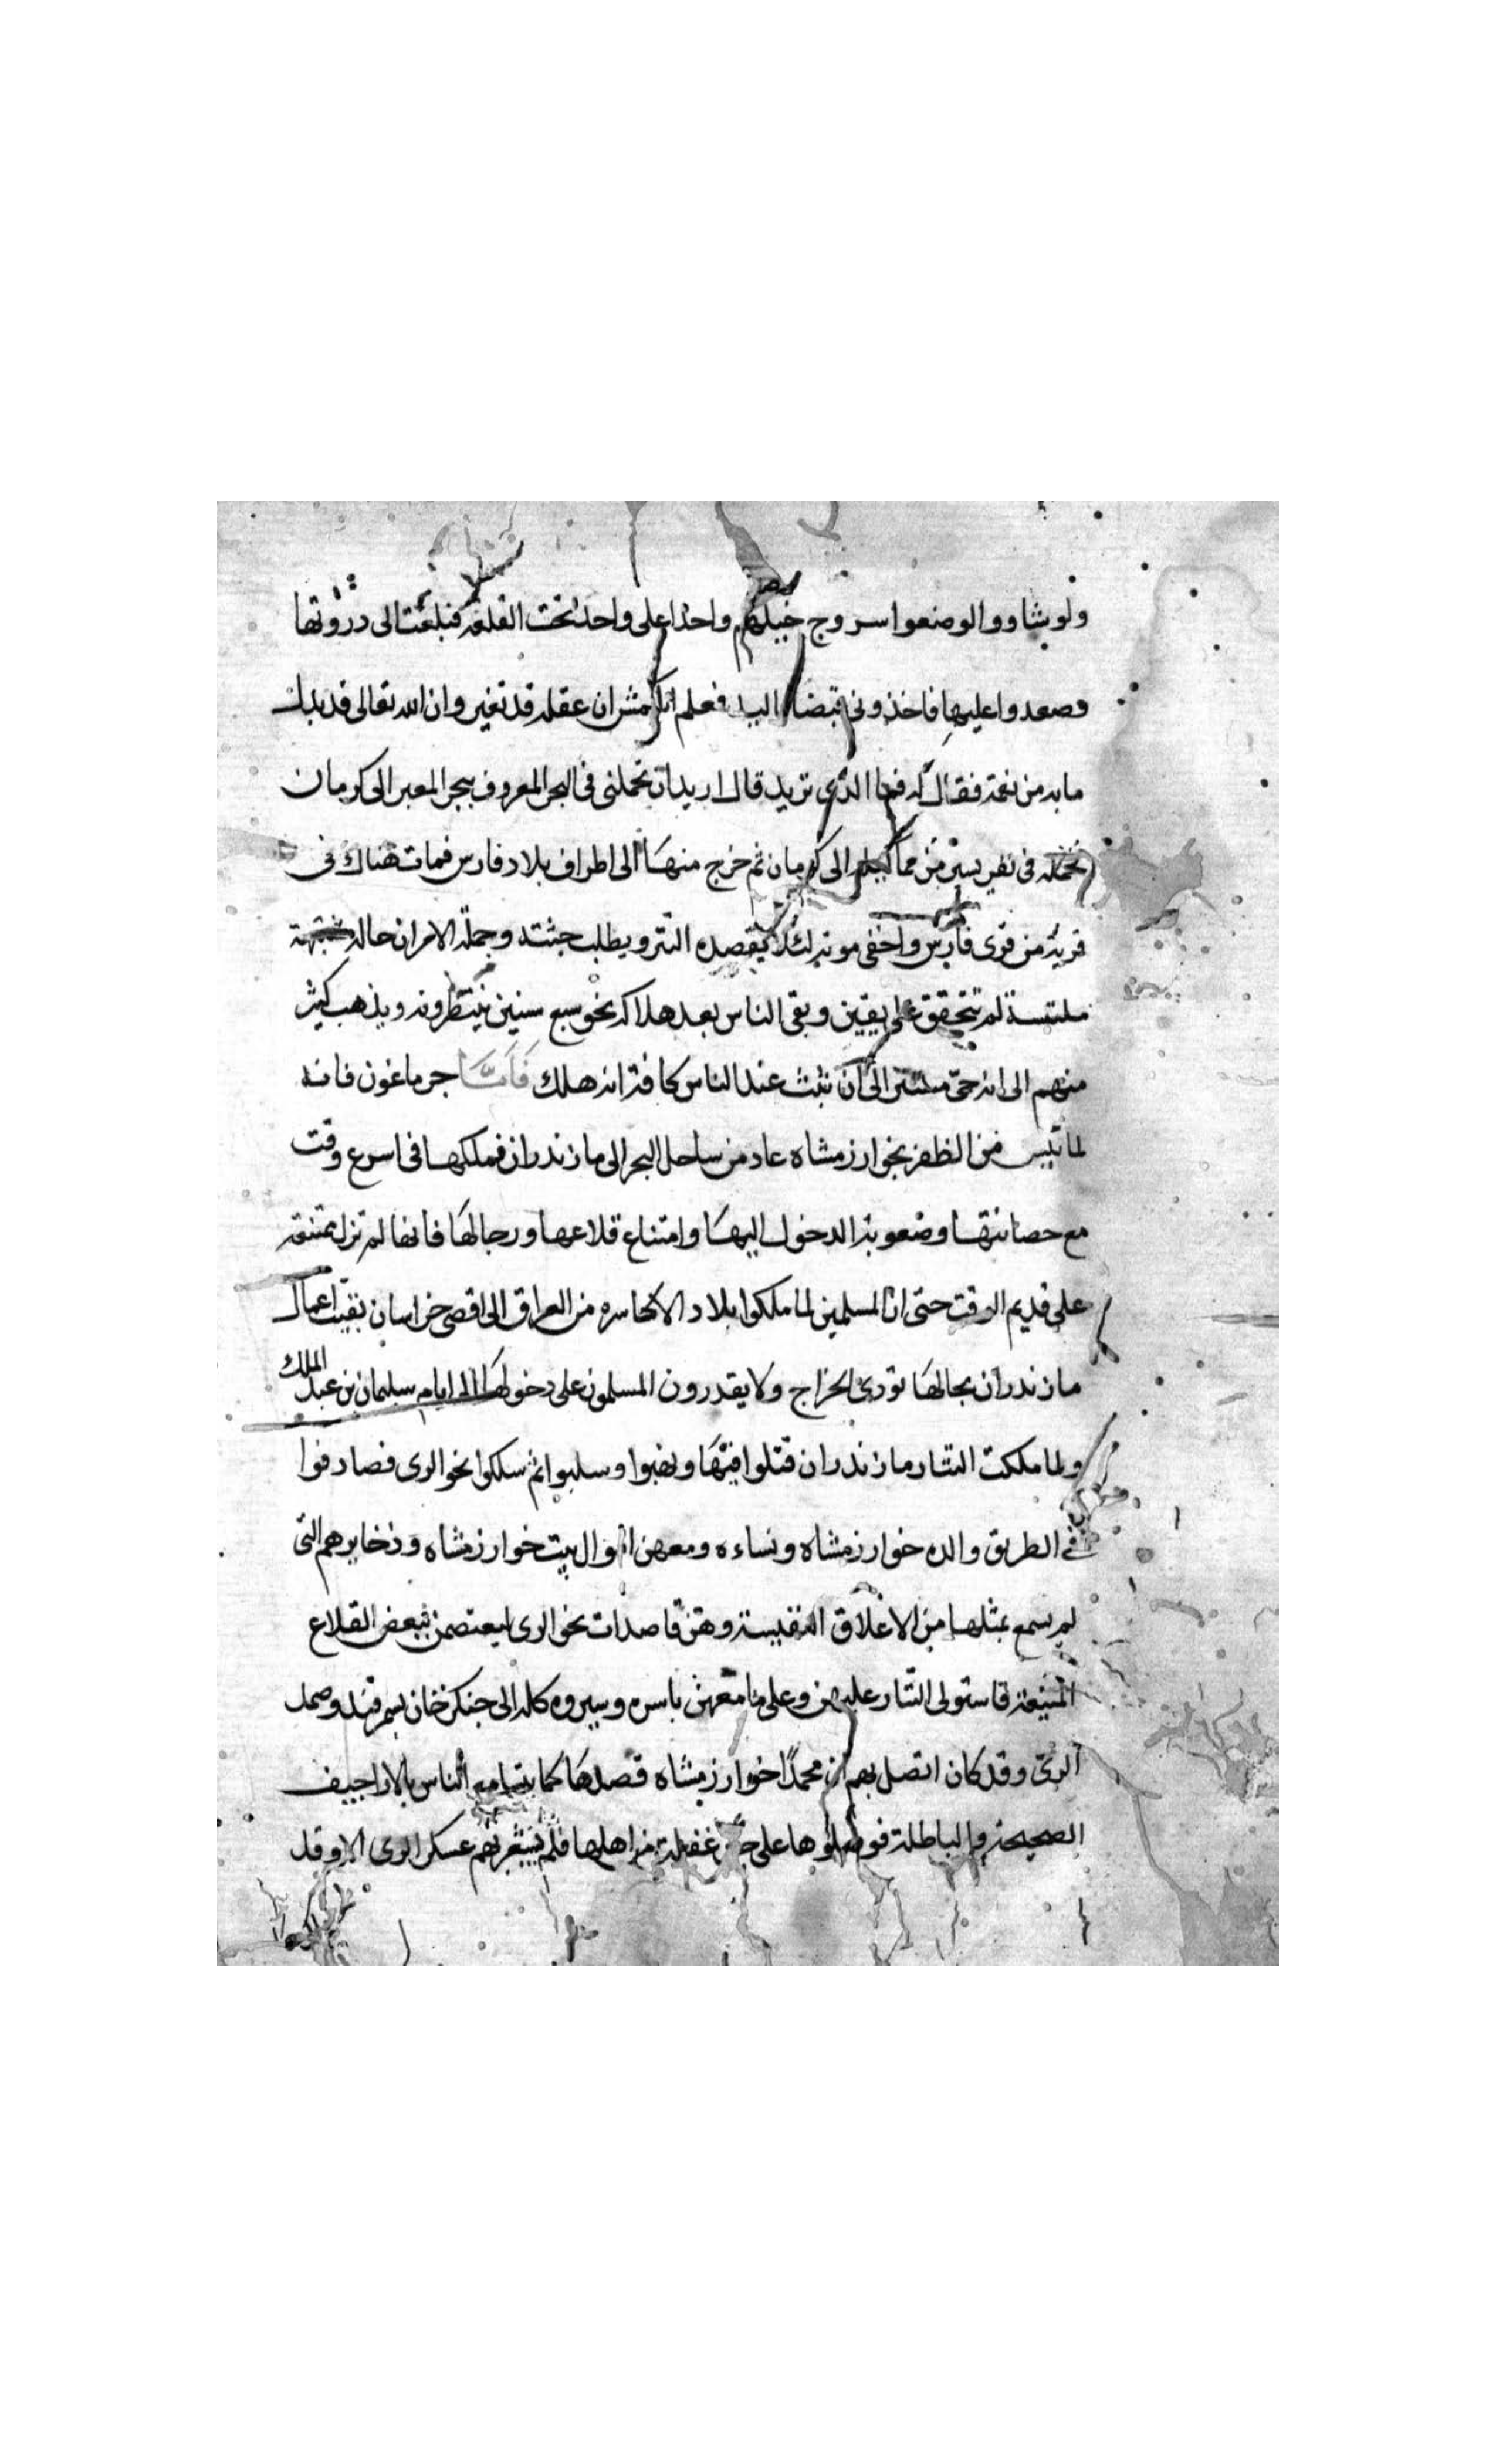 ولو يشاووا لوضعوا سروج خيلهم واحدا على واحد تحت القلعة فبلغت الى ذروتها
وصعدوا عليها فاخذوني قبضا باليد فعلم ان عقله قد تغير وان الله تعالى قد بدل
ما به من نعمة فقال له فما الذي تريد قال اريد ان تحملنى فى البحر المعروف ببحر المعبر الى كرمان
فحمله فى نفر يسير من مماليكه الى كرمان ثم خرج منها الى اطراف بلاد فارس فمات هناك فى
قرية من قرى فارس واخفى موته لئلا يقصده التتر ويطلب جثته وجملة الامر ان حاله مشتبهة
ملتبسة لم تتحقق على يقين وبقى الناس بعد هلاكه نحو سبع سنين ينتظرونه ويذهب كثير
منهم الى انه حى مستتر الى ان ثبت عند الناس كافة انه هلك فامّا جرماغون فانه
لما يئس من الظفر بخوارزمشاه عاد من ساحل البحر الى مازندران فملكها فى اسرع وقت
مع حصانتها وصعوبة الدخول اليها وامتناع قلاعها ورجالها فانها لم تزل ممتنعة
على قديم الوقت حتى ان المسلمين لما ملكوا بلاد الاكاسره من العراق الى اقصى خراسان بقيت اعمال
مازندران بحالها تودى الخراج ولا يقدرون المسلمون على دخولها الى ايام سليمان بن عبد الملك
ولما ملكت التتار مازندران قتلوا فيها ونهبوا وسلبوا ثم سلكوا نحو الرى فصادفوا
فى الطريق والدة خوارزمشاه ونساءه ومعهن اموال بيت خوارزمشاه وذخايرهم التى
لم يسمع بمثلها من الاعلاق النفيسة وهن قاصدات نحو الرى ليعتصمن ببعض القلاع
المنيعة فاستولى التتار عليهن وعلى ما معهن باسره وسيروه كله الى جنكزخان بسمرقند وصمد
الرى وقد كان اتصل بهم ان محمدًا خوارزمشاه قصدها كما يتسامع الناس بالاراجيف
الصحيحة والباطلة فوصلوها على حين غفلة من اهلها فلم يشعر بهم عسكر الرى الا وقد